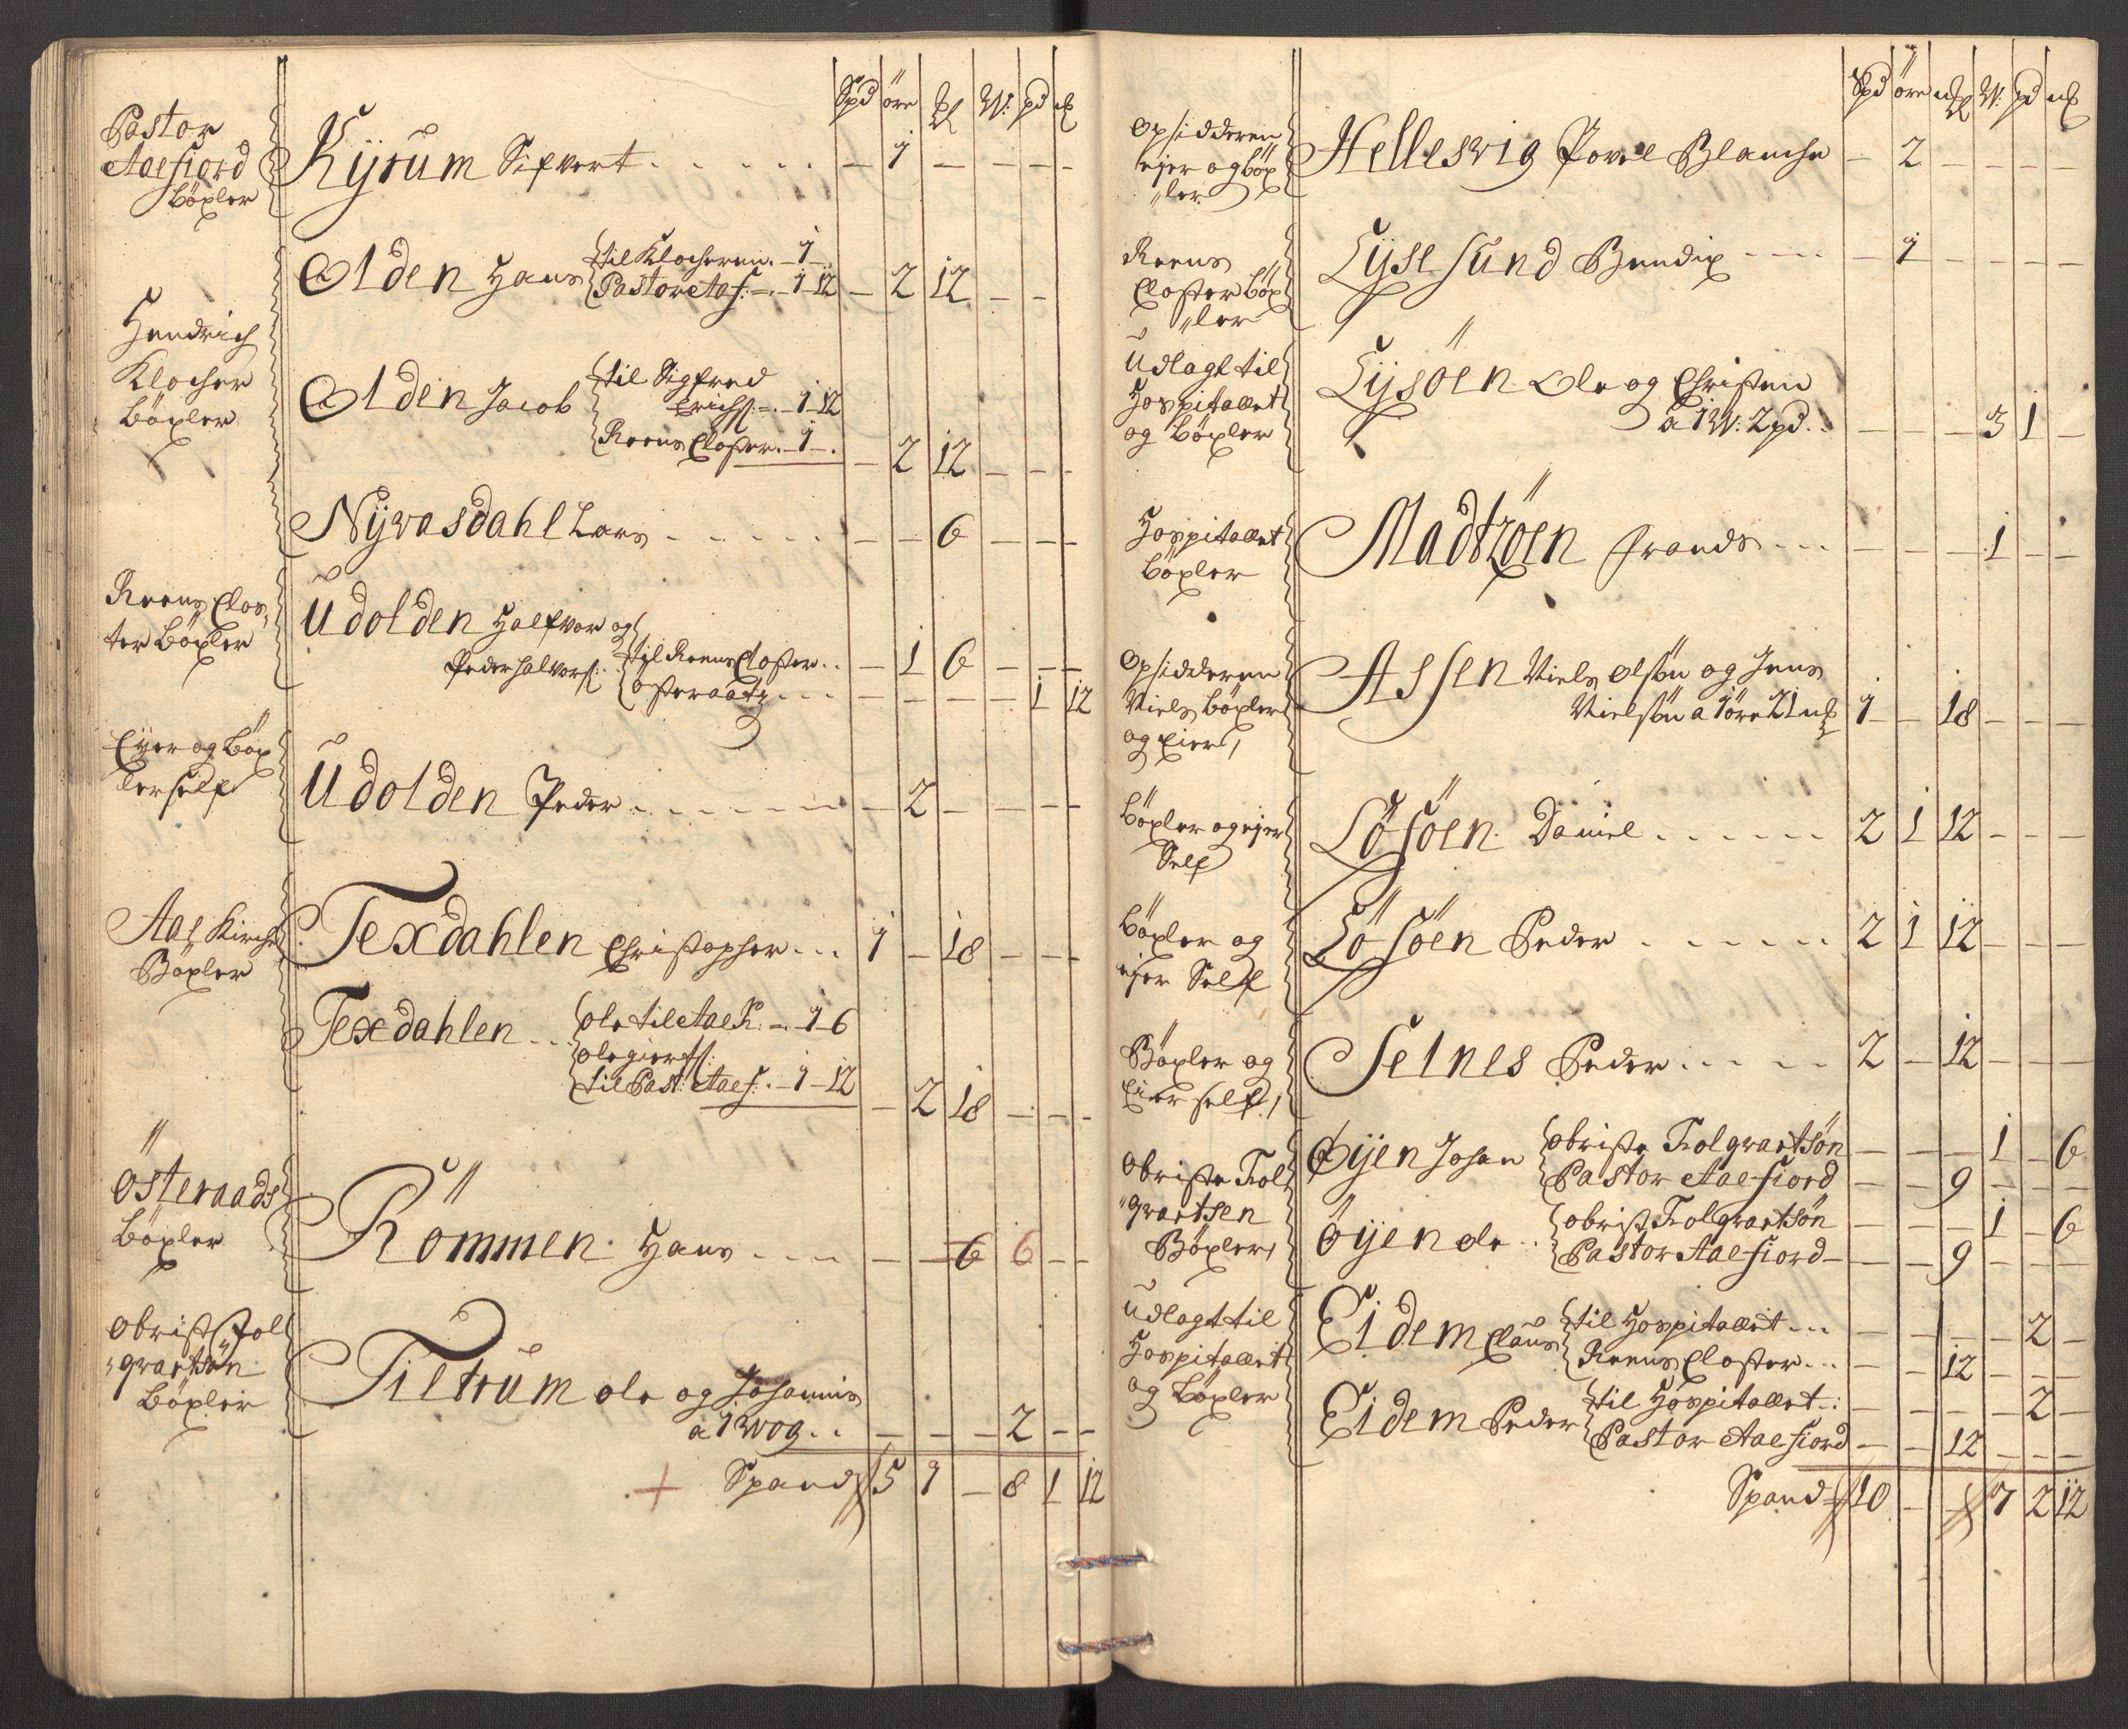 Spd öre ɱl W: pd ɱl
Pastor
Aaefiord
böxler
Kyrum Sifvert . . . . . — 1 — — — —
Olden Hans til Klocheren. — 1 —
Pastor Aaf: — 1 — 12 — 2 12 — —
Hendrich
Klocher
böxler
Olden Jacob til Sigfred
Erichs: — 1 — 12
Reens Closter. — 1 — — 2 12 — — —
Nyvasdahl Lars . . . . . — — 6 — — —
Reens Clos
ter böxler
Udolden Halfvor og
Peder Halvors: til Reens Closter . . — 1 6 — — —
Østeraat . . . — — — — 1 12
Eyer og böx
ler self
Udolden Peder . . . . . — 2 — — — —
Aae Kirche
Böxler
Texdahlen Christopher . . . 1 — 18 — — —
Texdahlen . . Ole til Aae K: — 1 — 6
Ole giertsl:
til Past: Aaef: — 1 — 12 — 2 18 — — —
Østeraads
böxler
Römmen Hans . . . — — 6 6 — —
Obrist Kol
gvartsøn
Böxler
Tiltrum Ole og Johannis
a 1 wog . . — — — 2 — —
+ Spand 15 1 — 8 1 12
Spd öre ɱl W: pd ɱl
Opsidderen
ejer og böx
ler
Hellesvig Povel Blanche — 2 — — — —
Reens
Closter böx
ler
Lysesund Bendix . . . . — 1 — — — —
Udlagt til
Hospitallet
og böxler
Lysöen Ole og Christen
a 1 W: 2 pd . . — — — 3 1 —
Hospitallet
böxler
Madtzöen Frands . . . — — — 1 — —
Opsidderen
Niels böxler
og Eier,
Assen Niels Olsön og Jens
Nielsön a 1 öre 21 ɱl 1 — 18 — — —
böxler og ejer
Self
Lösöen Daniel . . . . . 2 1 12 — — —
böxler og
ejer Self
Lösöen Peder . . . . . 2 1 12 — — —
Böxler og
Eier self,
Selnes Peder . . . . 2 — 12 — — —
Obriste Kol
gvartsen
Böxler,
Øyen Johan Obriste Kolgvartsön — — — 1 — 6
Pastor Aaefiord — — 9 — — —
Öyen Ole . . Obrist Kolgvartsön — — — 1 — 6
Pastor Aaefiord — — — 9 — — —
Udlagt til
Hospitallet
og böxler
Eidem Claus til Hospitallet . . . — — — — 2 —
Reens Closter . . . — — 12 — — —
Eidem Peder til Hospitallet . : — — — — 2 —
Pastor Aaefiord — — 12 — — —
Spand 10 — — 7 2 12